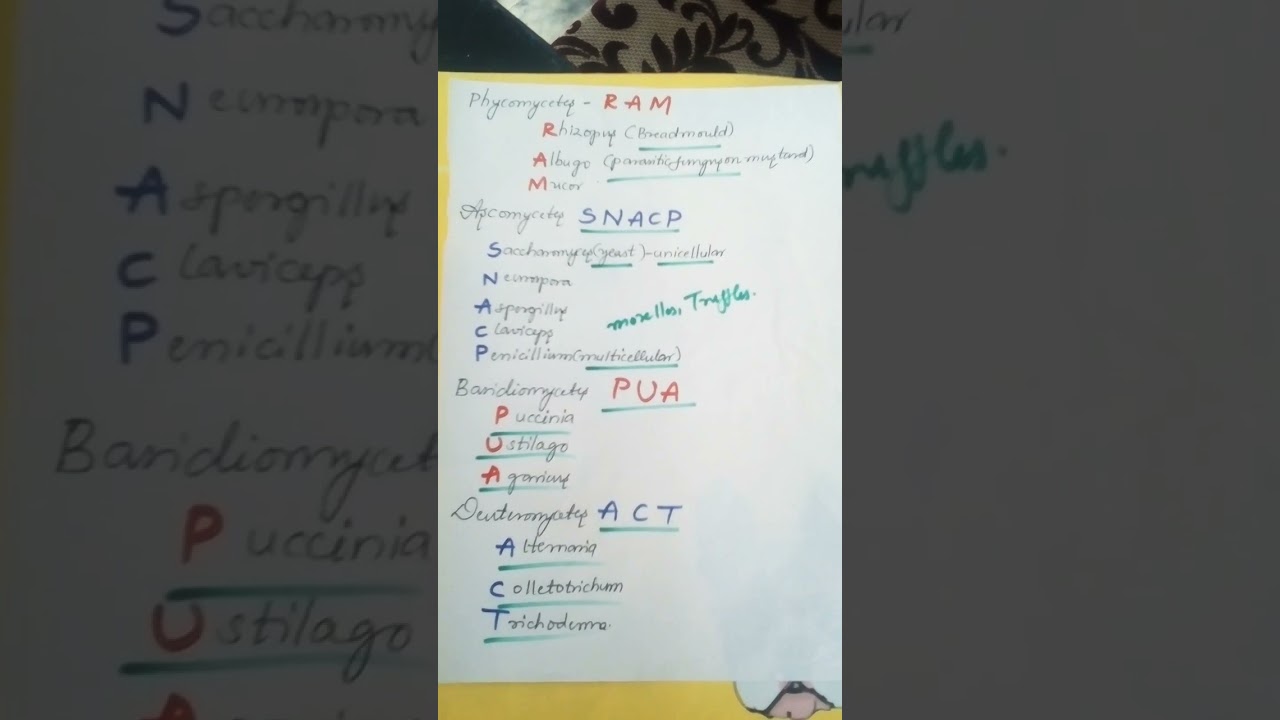 Phycomycetes - RAM
Rhizopus (Breadmould)
Albugo (parasitic fungus on mustard)
Mucor
Ascomycetes SNACP
Saccharomyces (yeast) - unicellular
Neurospora
Aspergillus
morelles, Truffles.
Claviceps
Penicillium (multicellular)
Basidiomycetes PUA
Puccinia
Ustilago
Agaricus
Deuteromycetes ACT
Alternaria
Colletotrichum
Trichoderma.